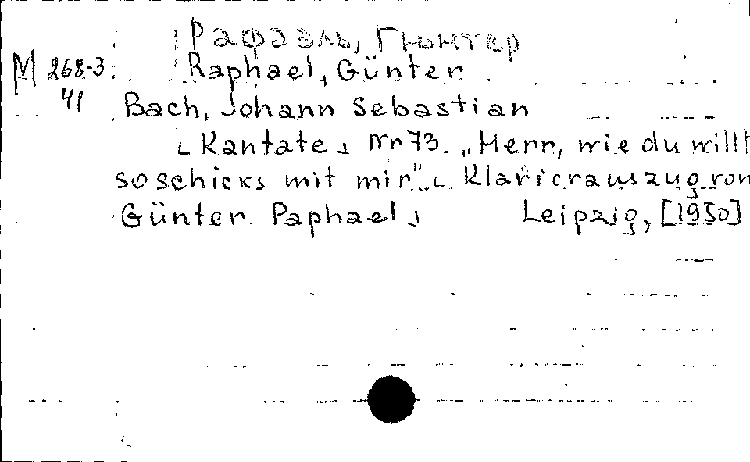 Рафаэль, Гюнтер
М 268-3
41
Raphael, Günter
Bach, Johann Sebastian
[Kantate] Nr 73. „Herr, wie du willt
so schicks mit mir". [Klavierauszug von
Günter Raphael]   Leipzig, [1950]